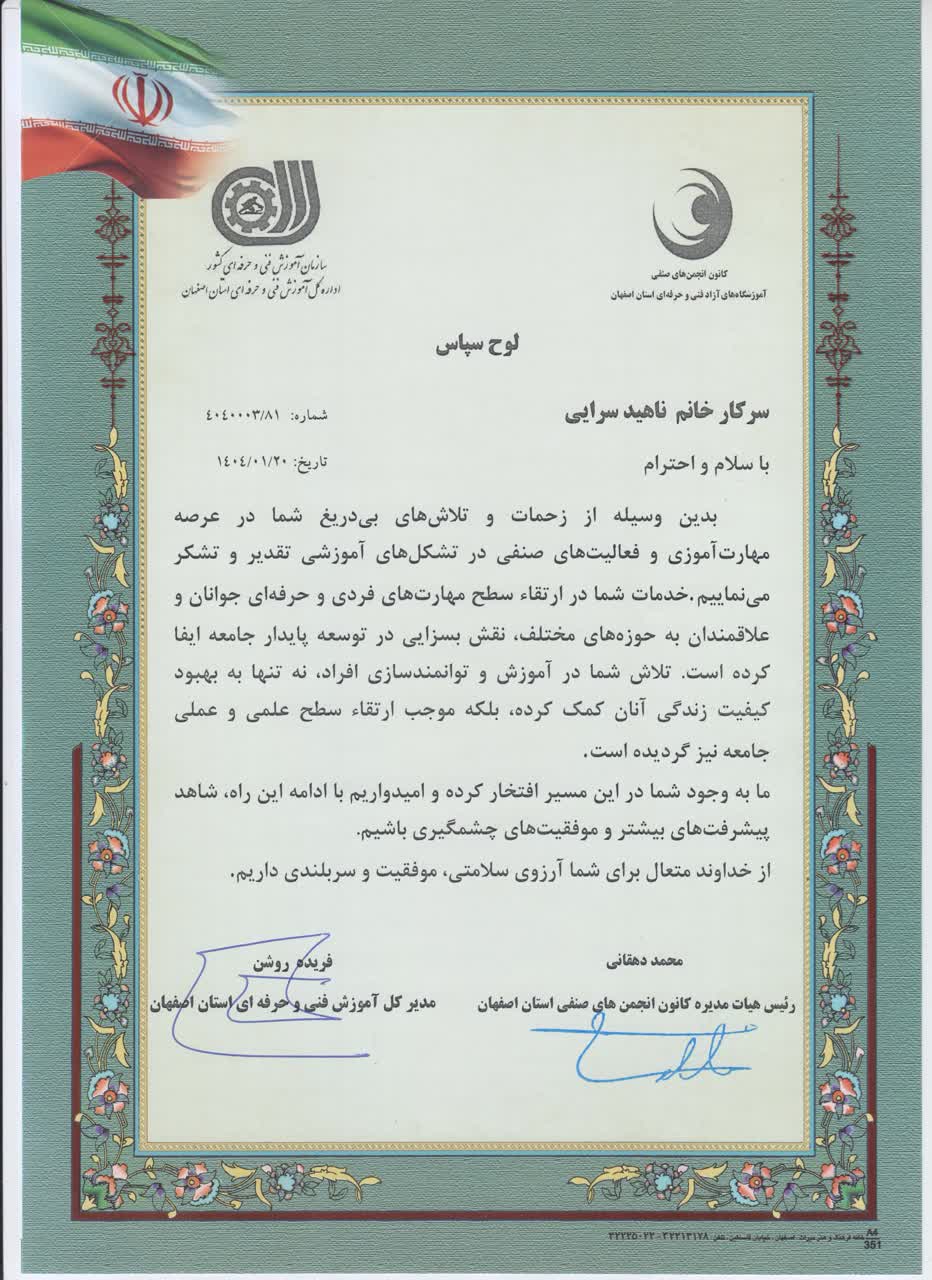 سازمان آموزش فنی و حرفه ای کشور
اداره کل آموزش فنی و حرفه ای استان اصفهان
کانون انجمن‌های صنفی
آموزشگاه‌های آزاد فنی و حرفه‌ای استان اصفهان
لوح سپاس
سرکار خانم ناهید سرایی
شماره: ۴۰۴۰۰۰۳/۸۱
با سلام و احترام
تاریخ: ۱۴۰۴/۰۱/۲۰
بدین وسیله از زحمات و تلاش‌های بی‌دریغ شما در عرصه
مهارت‌آموزی و فعالیت‌های صنفی در تشکل‌های آموزشی تقدیر و تشکر
می‌نماییم.خدمات شما در ارتقاء سطح مهارت‌های فردی و حرفه‌ای جوانان و
علاقمندان به حوزه‌های مختلف، نقش بسزایی در توسعه پایدار جامعه ایفا
کرده است. تلاش شما در آموزش و توانمندسازی افراد، نه تنها به بهبود
کیفیت زندگی آنان کمک کرده، بلکه موجب ارتقاء سطح علمی و عملی
جامعه نیز گردیده است.
ما به وجود شما در این مسیر افتخار کرده و امیدواریم با ادامه این راه، شاهد
پیشرفت‌های بیشتر و موفقیت‌های چشمگیری باشیم.
از خداوند متعال برای شما آرزوی سلامتی، موفقیت و سربلندی داریم.
محمد دهقانی
رئیس هیات مدیره کانون انجمن های صنفی استان اصفهان
فریده روشن
مدیر کل آموزش فنی و حرفه ای استان اصفهان
خانه فرهنگ و هنر میراث. اصفهان. خیابان فلسطین. تلفن: ۳۲۲۱۳۱۷۸ - ۳۲۲۲۵۰۲۲
A4
351